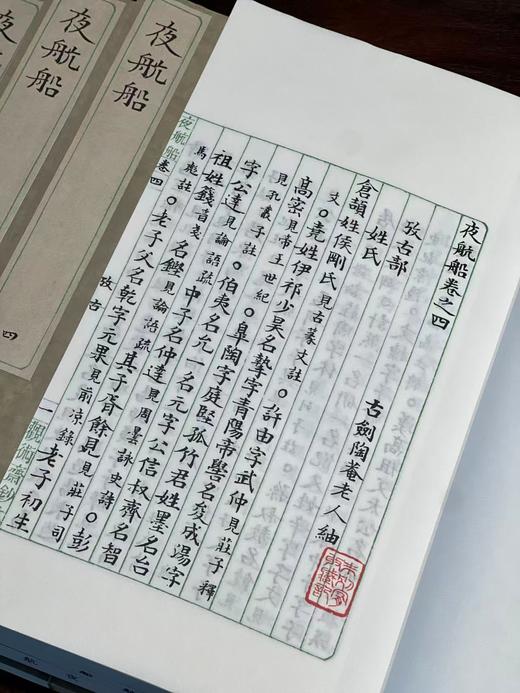 夜航船卷之四
攷古部 古劍陶菴老人紬
姓氏
倉頡姓侯剛氏見古篆文註。許由字武仲見莊子釋
文。堯姓伊祁少昊名摯字青陽帝嚳名夋成湯字
高密見帝王世紀。皋陶字庭堅孤竹君姓墨名台
見孔叢子註。伯夷名允一名元字公信叔齊名智
字公達見論語疏。中子名仲達見周曇詠史詩。彭
祖姓籛音戔名鏗見論語疏其子胥餘見見莊子司
馬彪註。老子父名乾字元果見前涼錄老子初生
夜航船 卷四 攷古 一
夜航船
夜航船 四